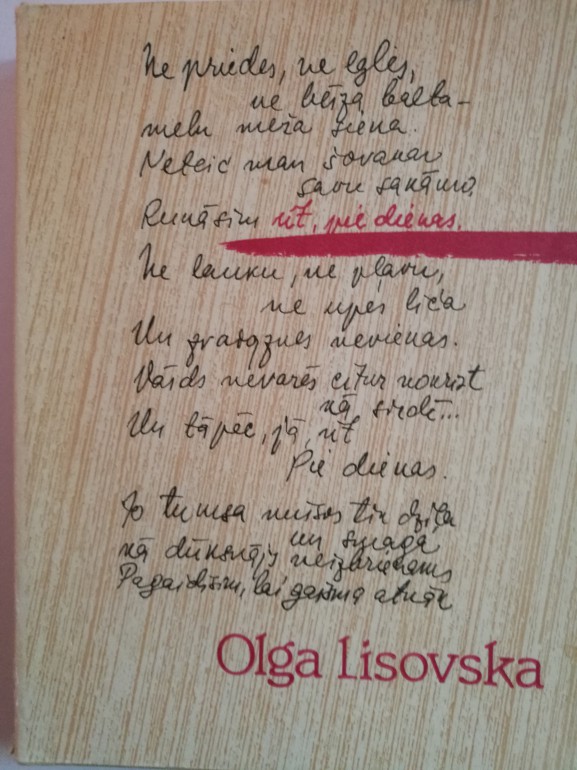 Ne priedes, ne egles,
ne bieza balta-
melu meža siena.
Neteic man šovakar
savu sakāmo,
Runāsim rīt, pie dienas.
Ne lauku, ne pļavu,
ne upes līča
Un gravas nevienas.
Vārds nevarēs citur nokrist
kā sirdī...
Un tāpēc, jā, rīt
Pie dienas.
Jo tumsa mūsos tik dziļa
un smaga
kā dūksnājs neizbrienams
Pagaidīsim, lai gaisma atnāk
Olga Lisovska